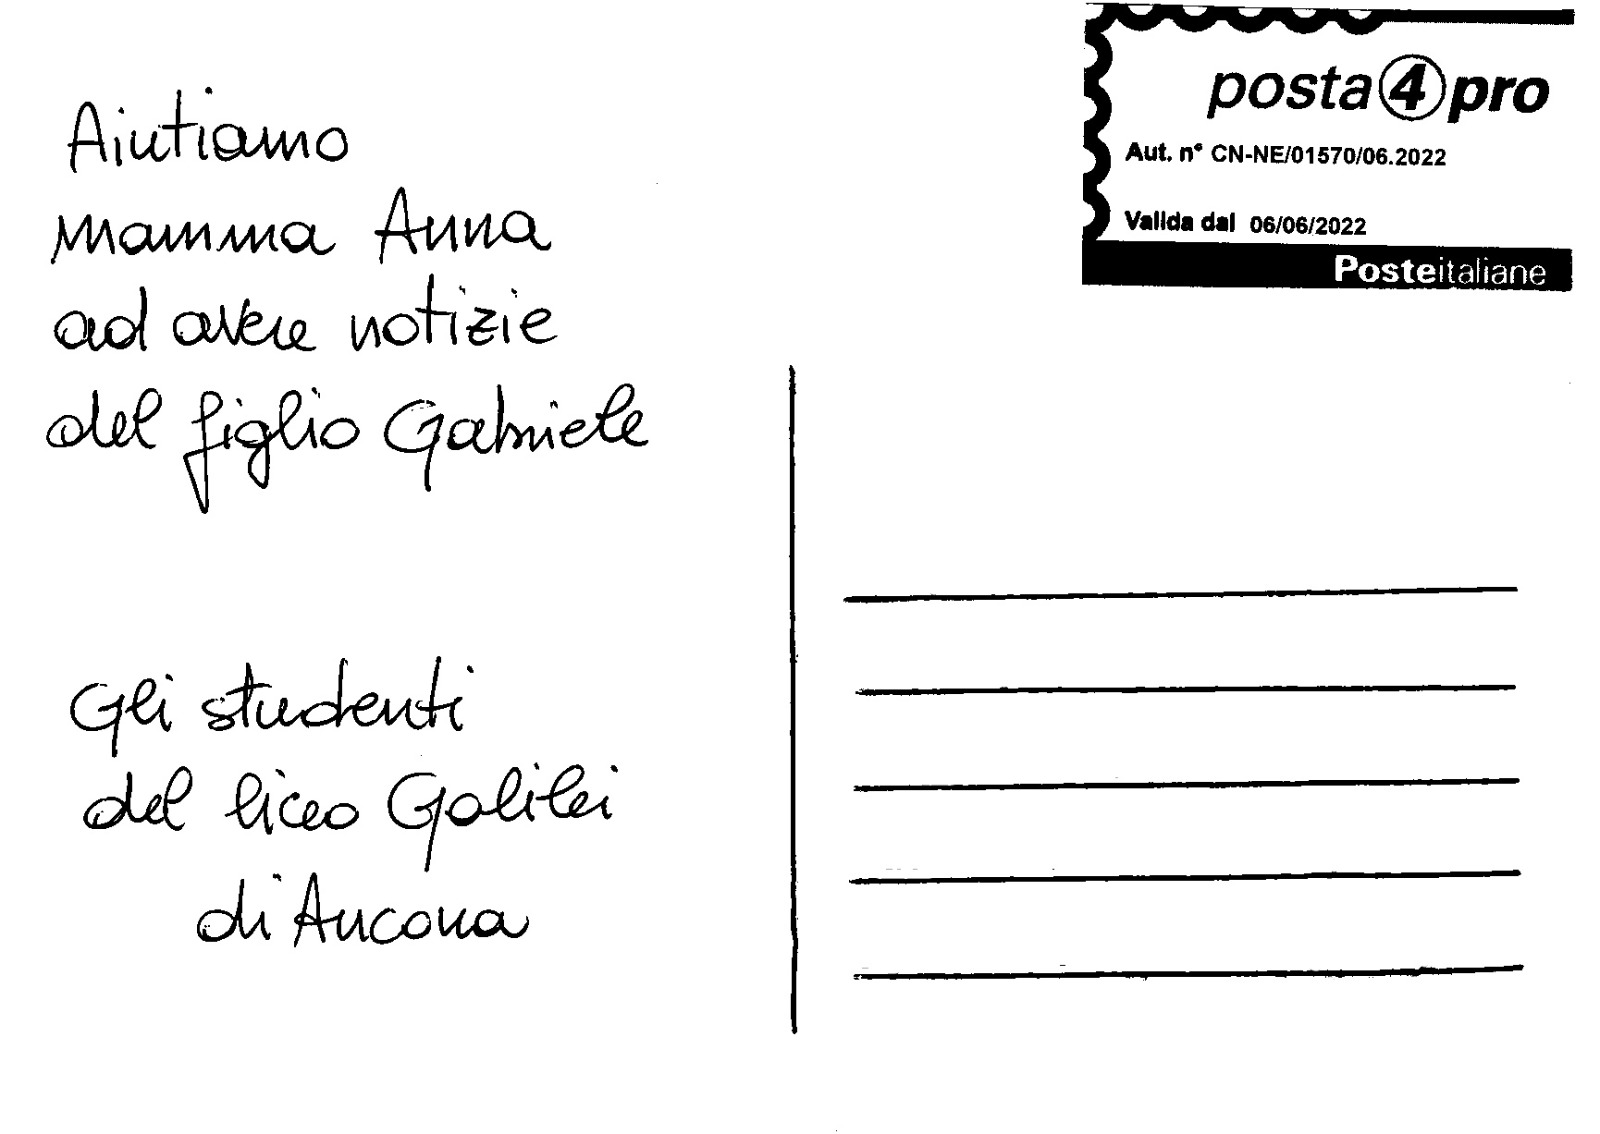 Aiutiamo
mamma Anna
ad avere notizie
del figlio Gabriele
Gli studenti
del liceo Galilei
di Ancona
posta 4 pro
Aut. n° CN-NE/01570/06.2022
Valida dal 06/06/2022
Posteitaliane